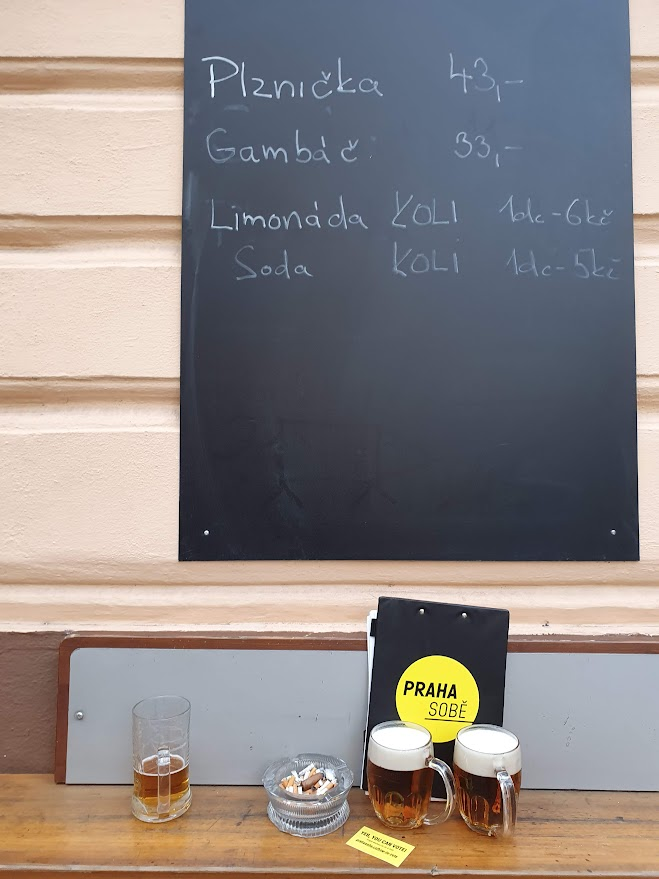 Plznička 43,-
Gambáč 33,-
Limonáda KOLI 1dc-6kč
Soda KOLI 1dc-5kč
PRAHA
SOBĚ
YES, YOU CAN VOTE!